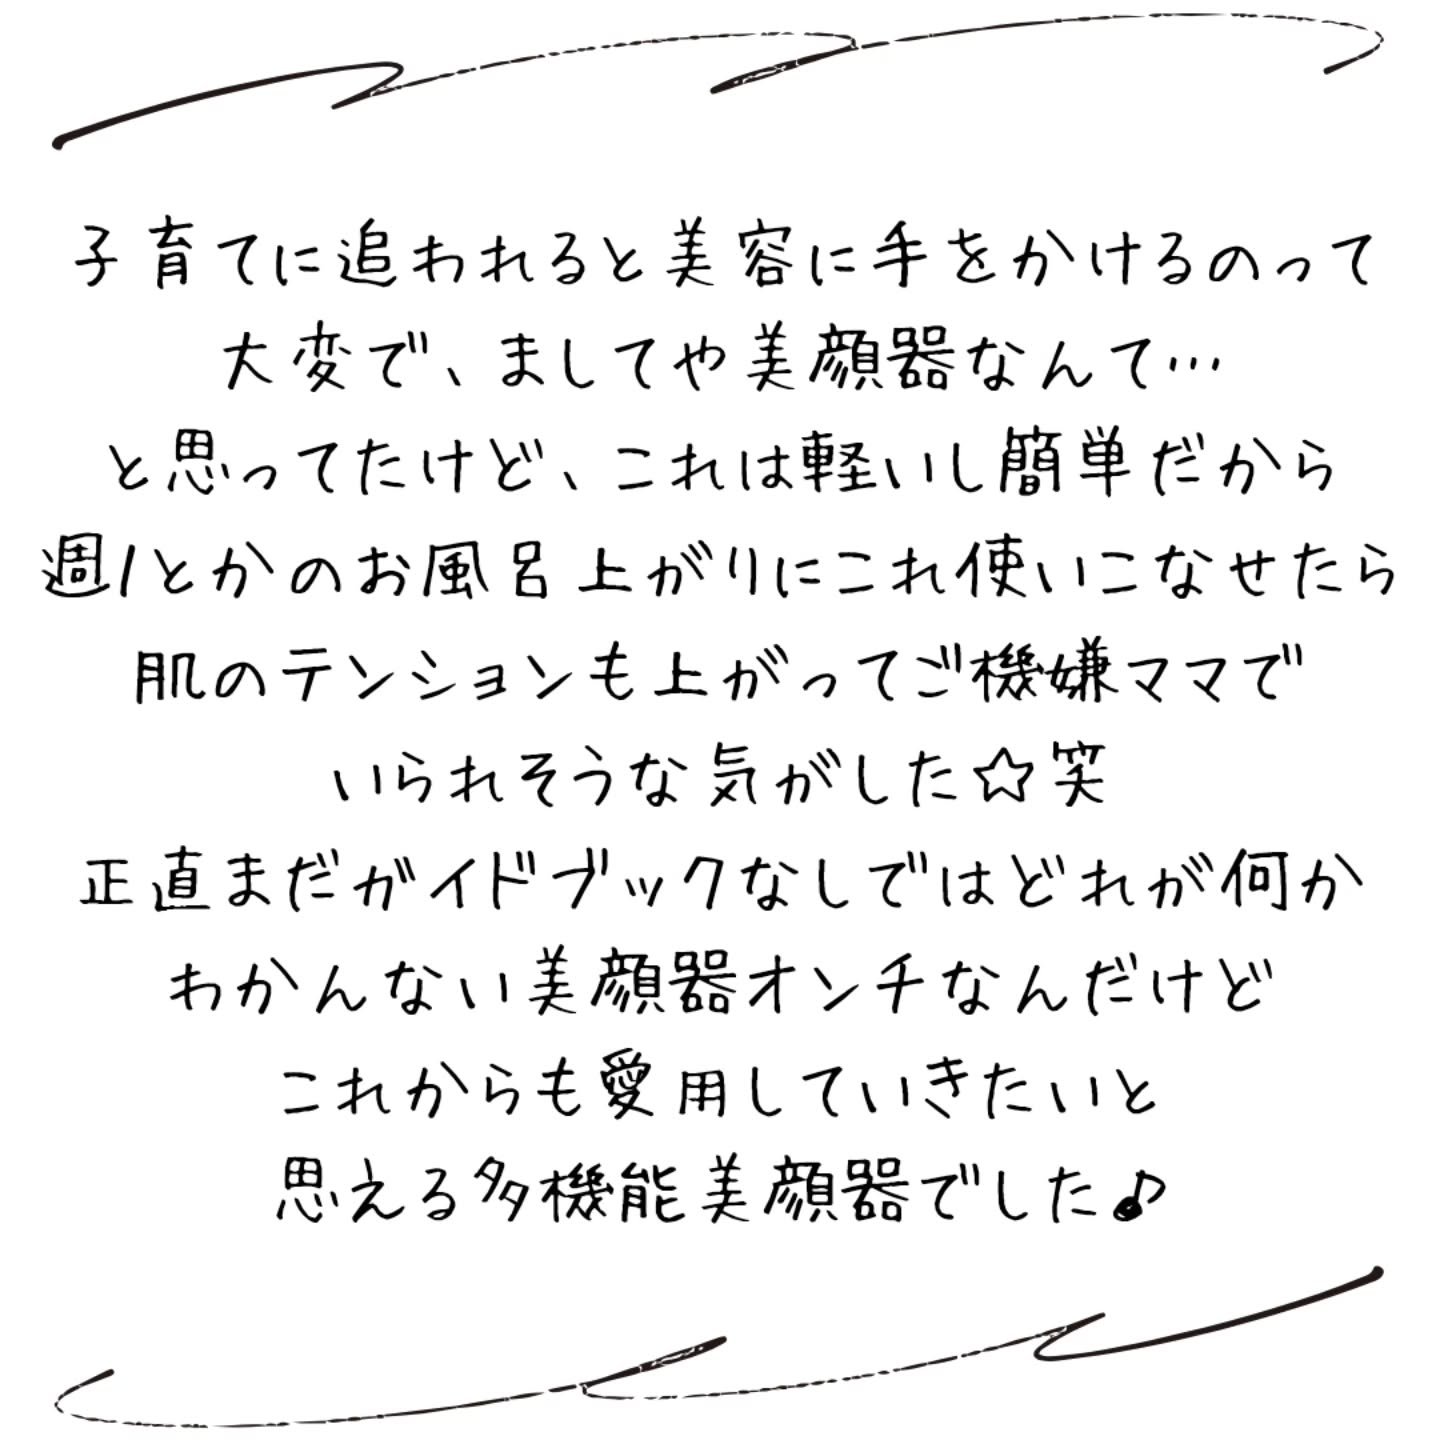 子育てに追われると美容に手をかけるのって
大変で、ましてや美顔器なんて…
と思ってたけど、これは軽いし簡単だから
週1とかのお風呂上がりにこれ使いこなせたら
肌のテンションも上がってご機嫌ママで
いられそうな気がした☆笑
正直まだガイドブックなしではどれが何か
わかんない美顔器オンチなんだけど
これからも愛用していきたいと
思える多機能美顔器でした♪